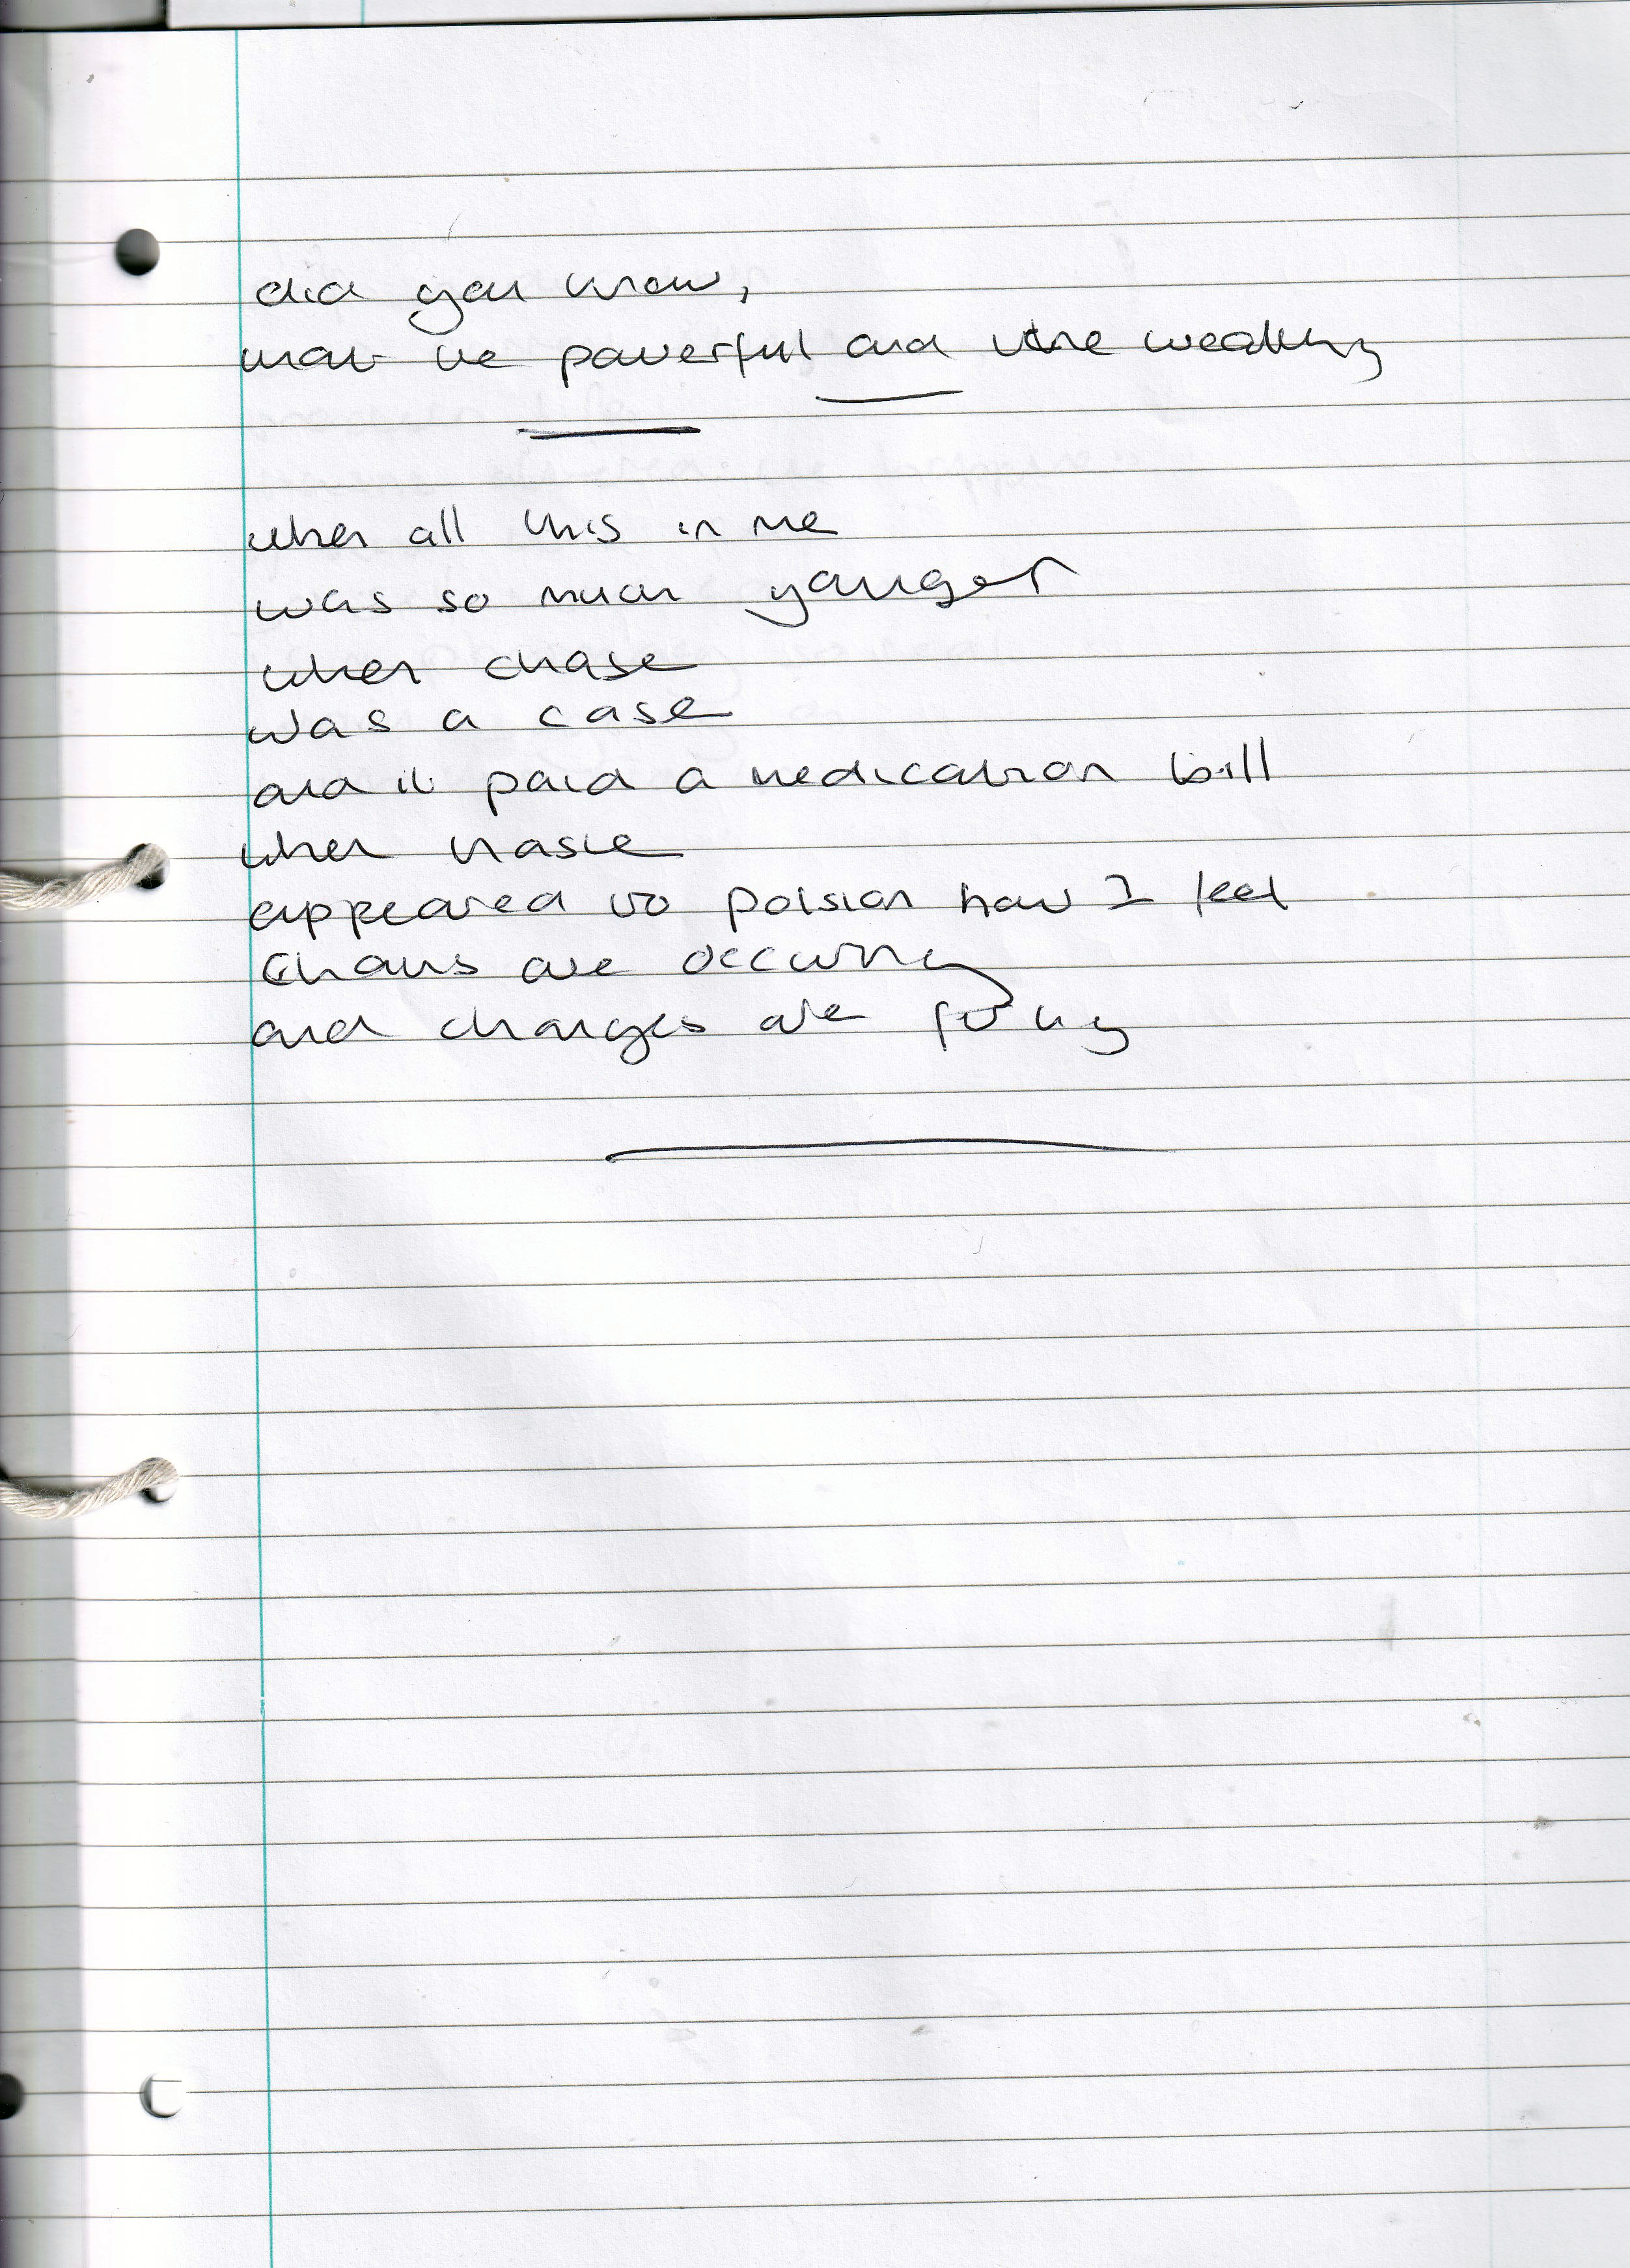 did you know,
that the powerful and the wealthy
when all this in me
was so much younger
when chase
was a case
and it paid a medication bill
when taste
appeared to poision how I feel
are occurring
and changes are